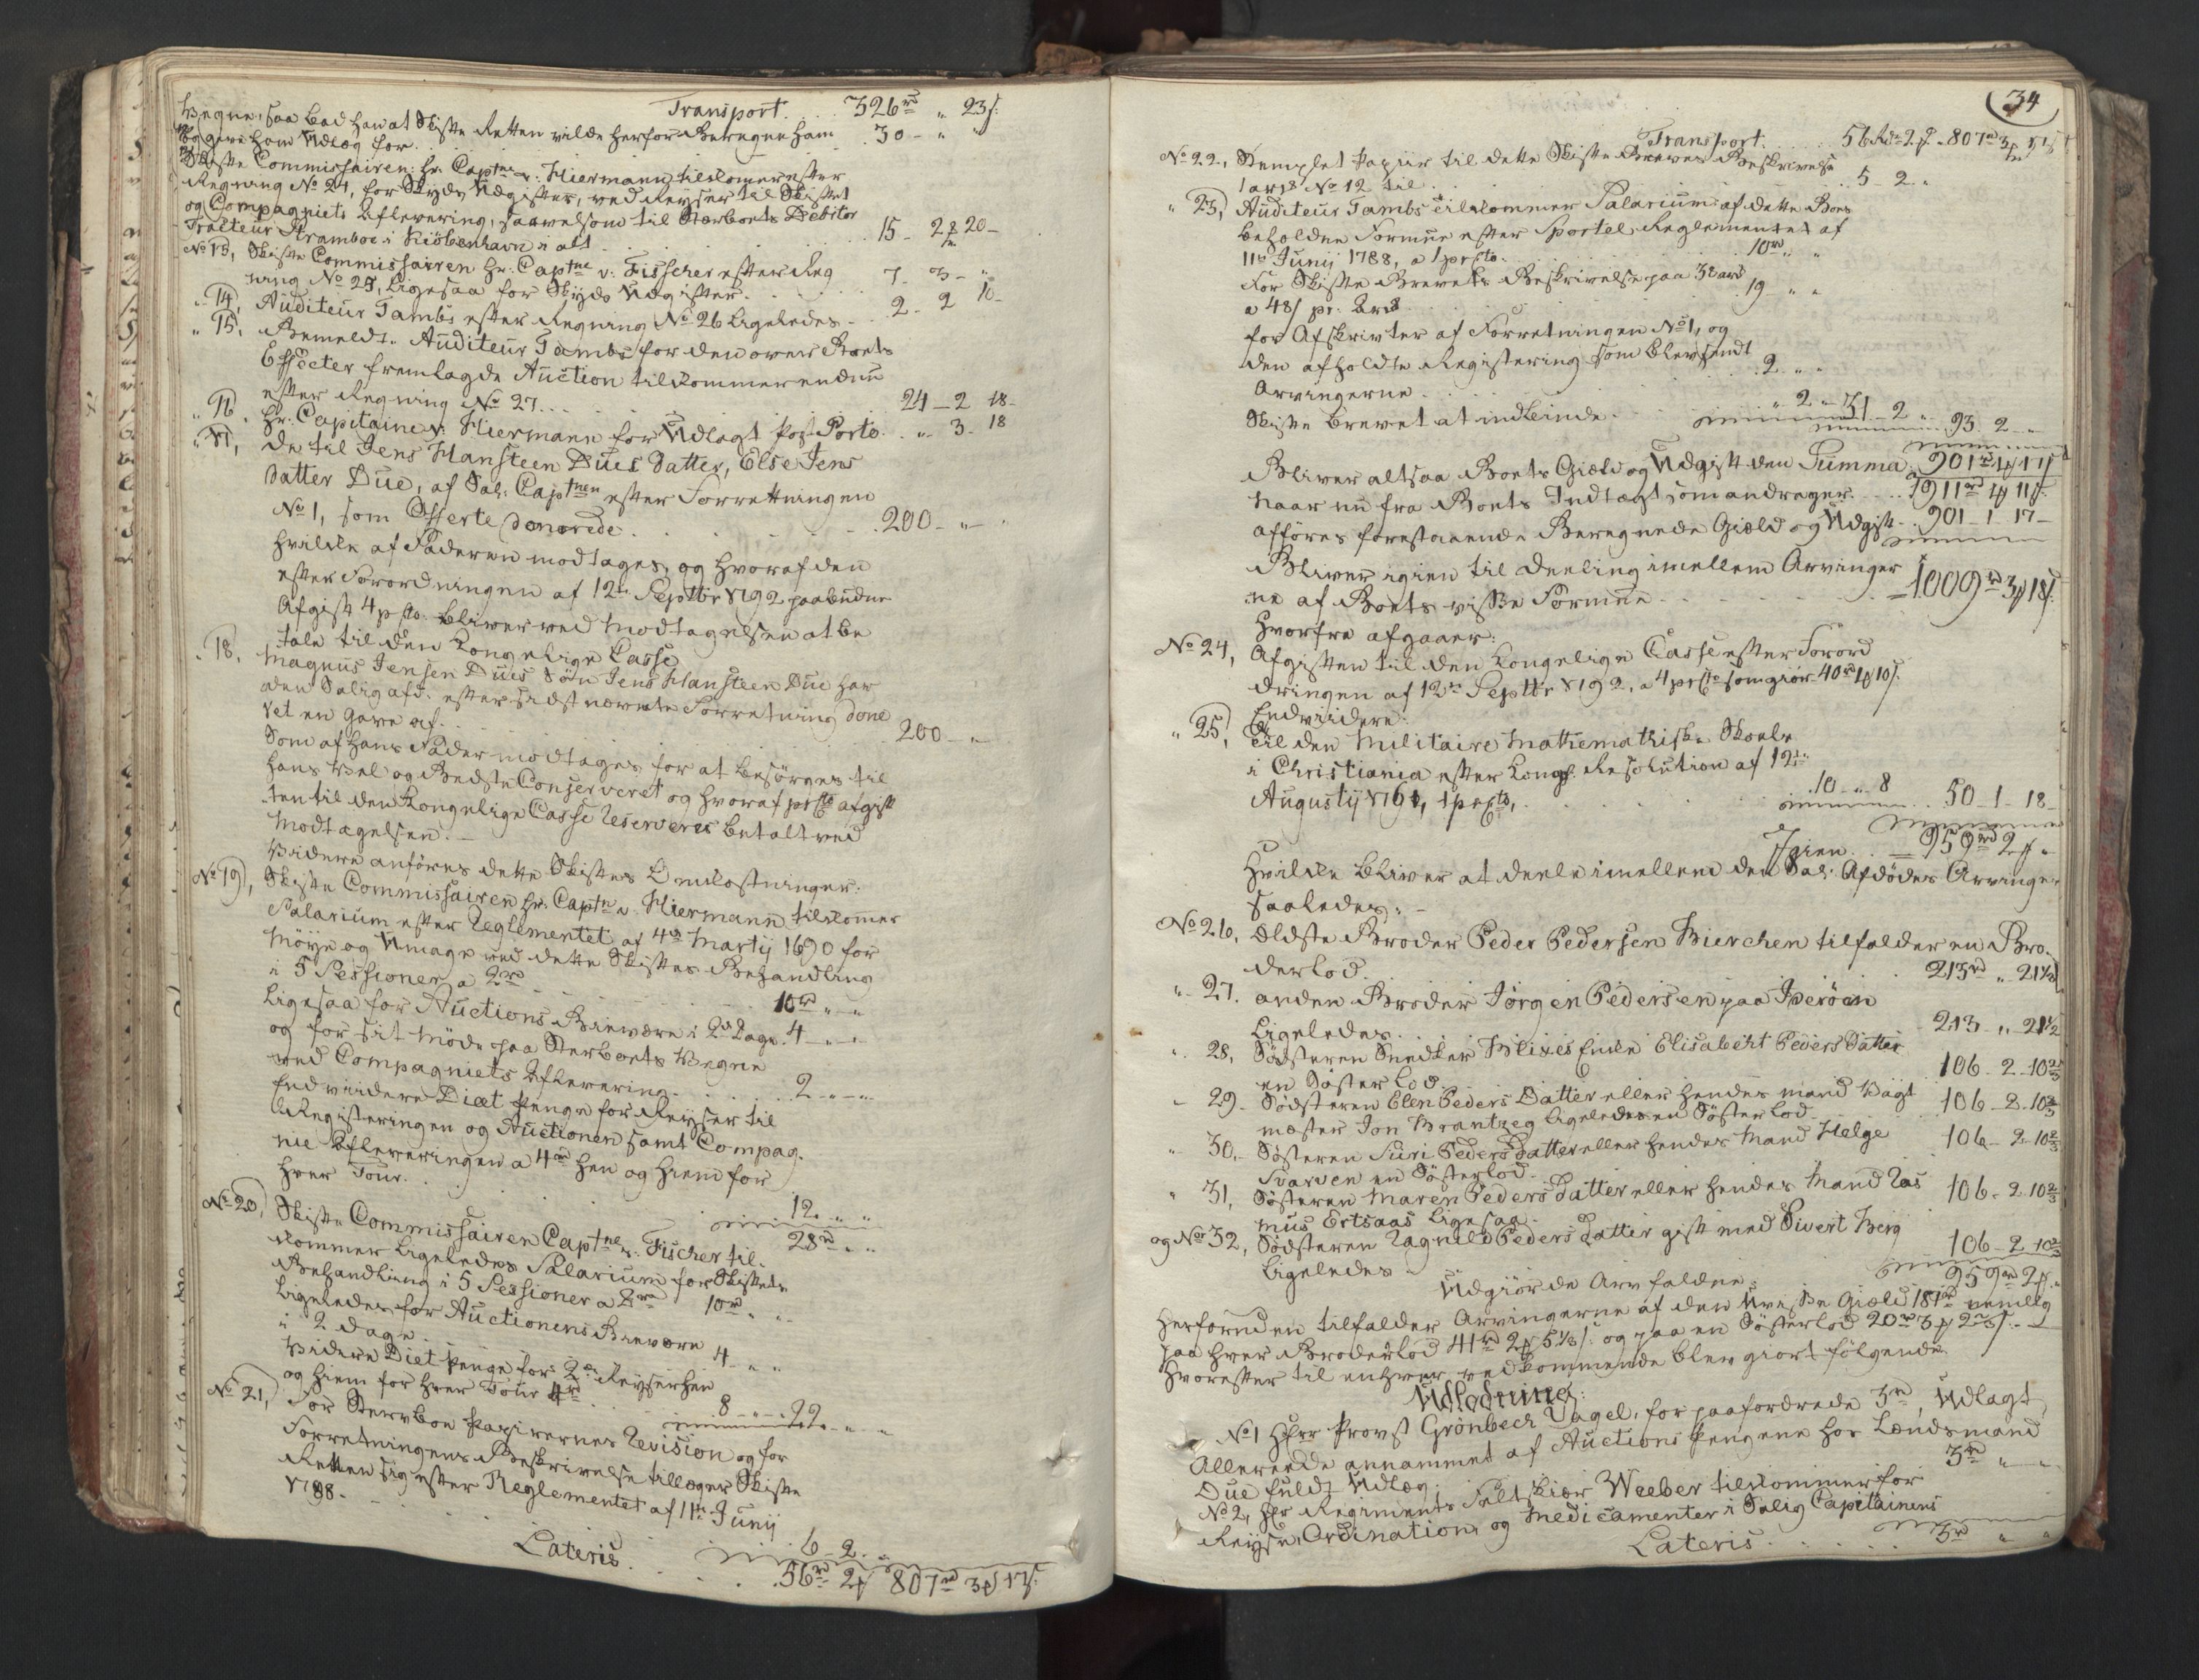 Transport . . . 326rd „ 23 s:
Vegne, saa bad han at Skifte Retten vilde herfor Beregne ham
og give ham Udlæg for . . . 30 - „ „
Skifte Commissairen: Hr. Captne v: Hiermann tilkommer efter
Regning No 24, for Skyds Udgifter, ved Reyser til Skiftet
og Compagniets Aflevering, saavelsom til Stærboets Debitor
Tracteur Stramboe i Kiöbenhavn i alt . . . 15 - 2 20 -
No 13, Skifte Commissairen Hr: Captne v: Fisscher efter Reg
ning No 25, Ligesaa for Skyds Udgifter . . . 7 - 3 - „
„ 14, Auditeur Tambs efter Regning No 26 Ligeledes - . . 2 - 2 10 -
„ 15, Bemeldt. Auditeur Tambs for den over Boets
Effecter fremlagde Auction tilkommer endnu
efter Regning No 27 . . . 24 - 2 18 -
„ 16, Hr: Capitaine v: Hiermann for Udlagt Post Porto . . „ 3 - 18
„ 17, Da til Jens Hansteen Dues Datter, Else Jens
Datter Due, af Sal: Captnen efter Forretningen
No 1, som Offerte Donerede . . . 200 - „ -
hvilke af Faderen modtages, og hvoraf den
efter Forordningen af 12te Septbr 1792 paabudne
Afgift 4 p Cto. bliver ved Modtagelsen at be
tale til den Kongelige Casse
„ 18, Magnus Jensen Dues Søn Jens Hansteen Due har
den Salig afd: efter sidst nævnte Forretning done
ret en Gave af . . . 200 - „
Som af hans Fader modtages for at besörges til
hans Vel og Bedste Conserveret og hvoraf prCto afgift
ten til den Kongelige Casse Reserveres betalt ved
Modtagelsen. -
Videre anföres dette Skiftes Omkostninger:
No 19, Skifte Commissairen Hr. Captn v: Hiermann tilkommer
Salarium efter Reglementet af 4de Martij 1690 for
Möye og Umage ved dette Skiftes Behandling
i 5 Sessioner a 2rd . . . 10rd „ „
Ligesaa for Auctions Bievære i 2de Dage . 4 - „ -
og for sit Möde paa Sterboets Vegne
ved Compagniets Aflevering . . . 2 - „ -
Endviidere Diæt Penge for Reyser til
Registeringen og Auctionen samt Compag.
nie Afleveringen a 4rd hen og hiem for
hver Tour . . . 12. „ „
28rd „ „
No 20, Skifte Commissairen Captne v: Fischer til-
kommer Ligeledes Salarium for Skiftets
Behandling i 5 Sessioner a 2rd 10rd „ „
Ligeledes for Auctionens Bievære
i 2 Dage . . . 4 - „ „
Videre Diet Penge for 2de Reyser hen
og hiem for hver Tour 4rd . . . 8 - „ - 22. - „ -
No 21, For Stervboe Papirernes Revision og for
Forretningens Beskrivelse tillægger Skifte
Retten sig efter Reglementet af 11te Junij
1788. - . . . 6 - 2. „
Lateris . . . 56rd 2 807rd 3 17 s:
34
Transport . . . 56 Rd 2 - 807rd 3 17 s
No 22, Stemplet Papiir til dette Skifte Brevets Beskrivelse
1 ark No 12 til . . . 5 - 2 „
„ 23, Auditeur Tambs tilkommer Salarium af dette Boes
beholdne Formue efter Sportel Reglementet af
11te Junij 1788, a 1 prCto . . . 10rd „ „
For Skifte Brevets Beskrivelse paa 38 ark
a 48 s pr. Ark . . . 19 „ „
for Afskrivter af Forretningen No 1, og
den afholdte Registering som blev sendt
Arvingerne . . . 2 „ „
Skifte Brevet at indbinde . . . „ 2 - 31 - 2 „ 93. 2 - „
Bliver altsaa Boets Giæld og Udgift den Summa 901rd 1 17 s
Naar nu fra Boets Indtægt som andrager . . . 1911rd 4 11 s:
afföres forestaaende Beregnede Giæld og Udgift . 901 - 1 - 17 -
Bliver igien til deeling imellem Arvinger
ne af Boets visse Formue . . . 1009rd 3 18 s.
Hvorfra afgaaer:
No 24, Afgiften til den Kongelige Casse efter Forord
dringen af 12te Septbr 1792, a 4 prCto som giör 40rd 1 10 s.
Endviidere:
„ 25, Til den Militaire Mathemathiske Skole
i Christiania efter Kongl. Resolution af 12te
Augustij 1761, 1 prCto, . . . 10 - „ - 8 . . 50 - 1 - 18 -
Igien . . . 959rd 2 „
Hvilke bliver at deele imellem den Sal: Afdödes Arvinger
saaledes: -
No 26, Ældste Broder Peder Pedersen Bierchen tilfalder en Bro-
derlod . . . 213rd „ 21 1/3
„ 27. anden Broder Jörgen Pedersen paa Inderöen
Ligeledes . . . 213 - „ 21 1/2
„ 28, Södsteren Snedker Blixes Enke Elisabeht Peders Datter
en Söster Lod . . . 106 - 2 - 10 2/3
„ 29 - Södsteren Elen Peders Datter eller hendes mand Vagt
mæster Jon Brantzeg Ligeledes en Söster Lod 106 - 2 - 10 2/3
„ 30, - Södsteren Siri Peders Datter eller hendes Mand Helge
Svarven en Söster lod . 106 - 2 - 10 2/3
„ 31, Södsteren Maren Peders Datter eller hendes Mand Ras
mus Ertsaas Ligesaa - 106 - 2 10 2/3
og No 32, Södsteren Ragnild Peders Datter gift med Sivert Berg
Ligeledes - 106 - 2 10 2/3
Udgiör de Arv faldne: 959rd 2 „
Herforuden tilfalder Arvingerne af den Uvisse Giæld 181rd nemlig
paa hver Broderlod 41rd 2 5 1/3 s: og paa en Söster Lod 20rd 3 2 2/3 s. -
Hvorefter til enhver vedkommende blev giort fölgende
Udlodning:
No 1 Herr Provst Grönbech Vagel, for paafordrede 3rd, Udlagt
Allereede annammet af Auctions Pengene hos Lændsmand
Due fuldt Udlæg . . . 3rd „ -
No 2, Hr Regiments Feltskiær Weeber tilkommer for
Reyse, Ordination og Medicamenter i Salig Capitainens
Lateris . . . 3rd „ „